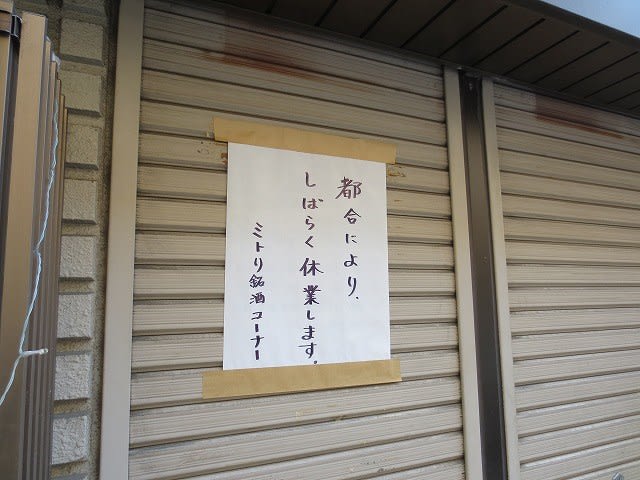 都合により.
しばらく休業します.
ミトリ銘酒コーナー